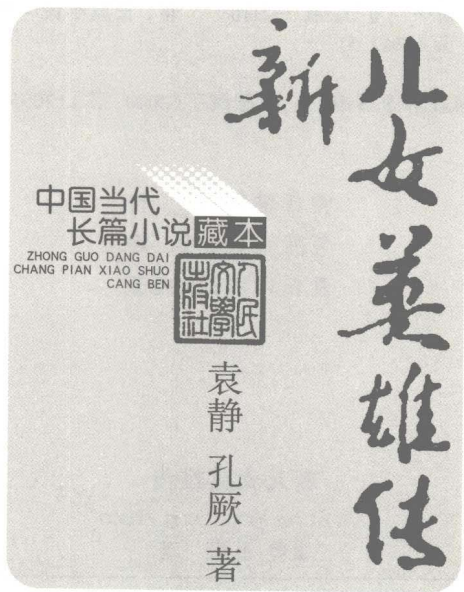 新
儿女英雄传
中国当代
长篇小说藏本
ZHONG GUO DANG DAI
CHANG PIAN XIAO SHUO
CANG BEN
人民
文學
出版社
袁静 孔厥 著